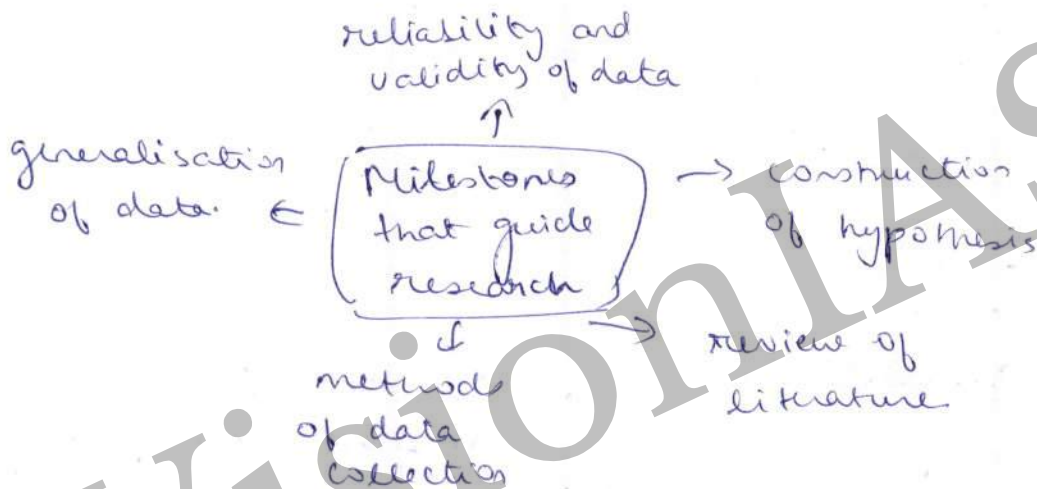 reliability and
validity of data
generalisation
of data.
Milestones
that guide
research
construction
of hypothesis
review of
literature
methods
of data
collection
VisionIAS